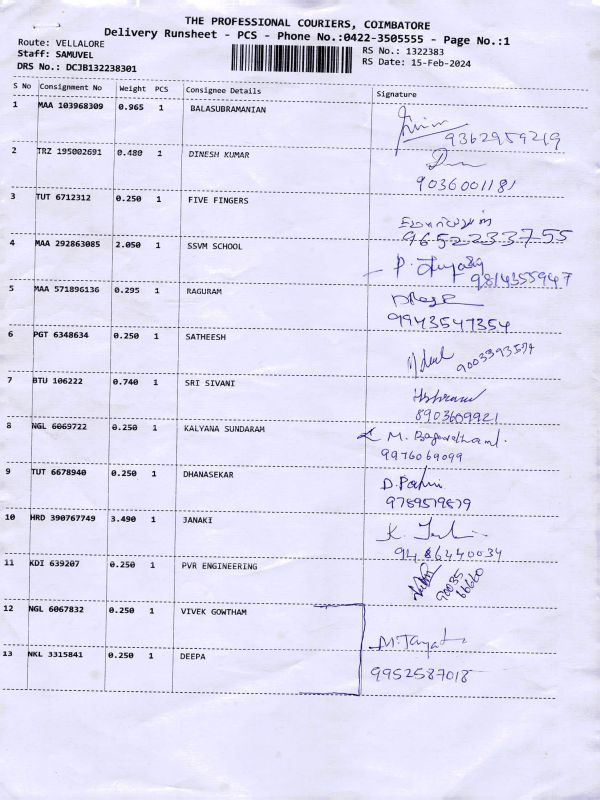 THE PROFESSIONAL COURIERS, COIMBATORE
Delivery Runsheet - PCS - Phone No.:0422-3505555 - Page No.:1
Route: VELLALORE
Staff: SAMUVEL
DRS No.: DCJB132238301
RS No.: 1322383
RS Date: 15-Feb-2024
S No Consignment No Weight PCS Consignee Details Signature
1 MAA 103968309 0.965 1 BALASUBRAMANIAN
9362959219
2 TRZ 195002691 0.480 1 DINESH KUMAR
9036001181
3 TUT 6712312 0.250 1 FIVE FINGERS
9652233755
4 MAA 292863085 2.050 1 SSVM SCHOOL
P.
9814355947
5 MAA 571896136 0.295 1 RAGURAM
9943547354
6 PGT 6348634 0.250 1 SATHEESH
9003393574
7 BTU 106222 0.740 1 SRI SIVANI
8903609921
8 NGL 6069722 0.250 1 KALYANA SUNDARAM
M.
9976069099
9 TUT 6678940 0.250 1 DHANASEKAR
D.
9789519879
10 HRD 390767749 3.490 1 JANAKI
K.
9486440034
11 KDI 639207 0.250 1 PVR ENGINEERING
90035
66660
12 NGL 6067832 0.250 1 VIVEK GOWTHAM
M.
13 NKL 3315841 0.250 1 DEEPA
9952587018